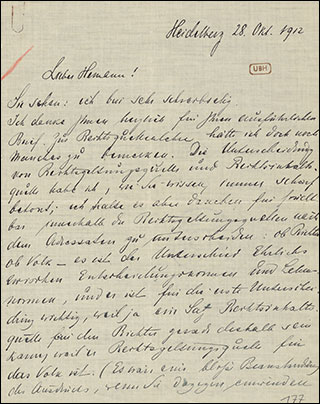 Heidelberg 28. Okt. 1912
UBH
Lieber Hermann!
Sie sehen: ich bin sehr schreibselig.
Ich danke Ihnen herzlich für Ihren ausführlichen
Brief. Zur Rechtsquellenlehre hätte ich doch noch
Manches zu bemerken. Die Unterscheidung
von Rechtsgeltungsquelle und Rechtsinhalts-
quelle habe ich, wie Sie wissen, immer scharf
betont; ich halte es aber daneben für
bar innerhalb der Rechtsgeltungsquellen nach
den Adressaten zu unterscheiden: ob Richter
ob Volk – es ist der Unterschied Ehrlichs
zwischen Entscheidungsnormen und
normen, und es ist für die erste Unterschei-
dung wichtig, weil ja ein Satz Rechtsinhalts-
quelle für den Richter gerade deshalb sein
kann, weil er Rechtsgeltungsquelle für
das Volk ist. (Es wäre eine bloße Beanstandung
des Ausdrucks, wenn Sie dagegen einwenden
177